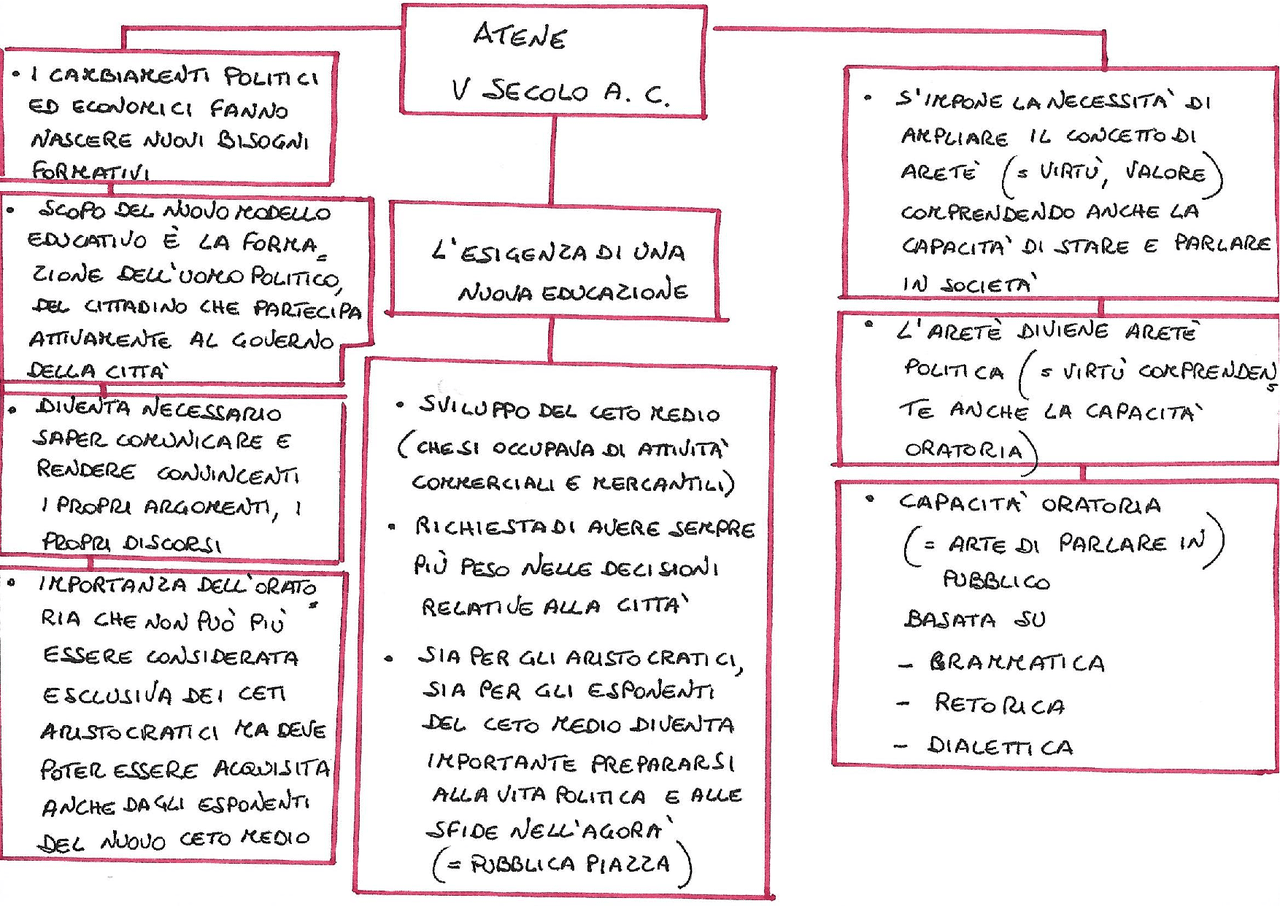 ATENE
V SECOLO A. C.
• I CAMBIAMENTI POLITICI
ED ECONOMICI FANNO
NASCERE NUOVI BISOGNI
FORMATIVI
• SCOPO DEL NUOVO MODELLO
EDUCATIVO È LA FORMA_
ZIONE DELL'UOMO POLITICO,
DEL CITTADINO CHE PARTECIPA
ATTIVAMENTE AL GOVERNO
DELLA CITTÀ
• DIVENTA NECESSARIO
SAPER COMUNICARE E
RENDERE CONVINCENTI
I PROPRI ARGOMENTI, I
PROPRI DISCORSI
• IMPORTANZA DELL'ORATO_
RIA CHE NON PUÒ PIÙ
ESSERE CONSIDERATA
ESCLUSIVA DEI CETI
ARISTOCRATICI MA DEVE
POTER ESSERE ACQUISITA
ANCHE DAGLI ESPONENTI
DEL NUOVO CETO MEDIO
L'ESIGENZA DI UNA
NUOVA EDUCAZIONE
• SVILUPPO DEL CETO MEDIO
(CHE SI OCCUPAVA DI ATTIVITÀ
COMMERCIALI E MERCANTILI)
• RICHIESTA DI AVERE SEMPRE
PIÙ PESO NELLE DECISIONI
RELATIVE ALLA CITTÀ
• SIA PER GLI ARISTOCRATICI,
SIA PER GLI ESPONENTI
DEL CETO MEDIO DIVENTA
IMPORTANTE PREPARARSI
ALLA VITA POLITICA E ALLE
SFIDE NELL'AGORÀ
(= PUBBLICA PIAZZA)
• S'IMPONE LA NECESSITÀ DI
AMPLIARE IL CONCETTO DI
ARETÈ (= VIRTÙ, VALORE)
COMPRENDENDO ANCHE LA
CAPACITÀ DI STARE E PARLARE
IN SOCIETÀ
• L'ARETÈ DIVIENE ARETÈ
POLITICA (= VIRTÙ COMPRENDEN_
TE ANCHE LA CAPACITÀ
ORATORIA)
• CAPACITÀ ORATORIA
(= ARTE DI PARLARE IN)
PUBBLICO
BASATA SU
- GRAMMATICA
- RETORICA
- DIALETTICA